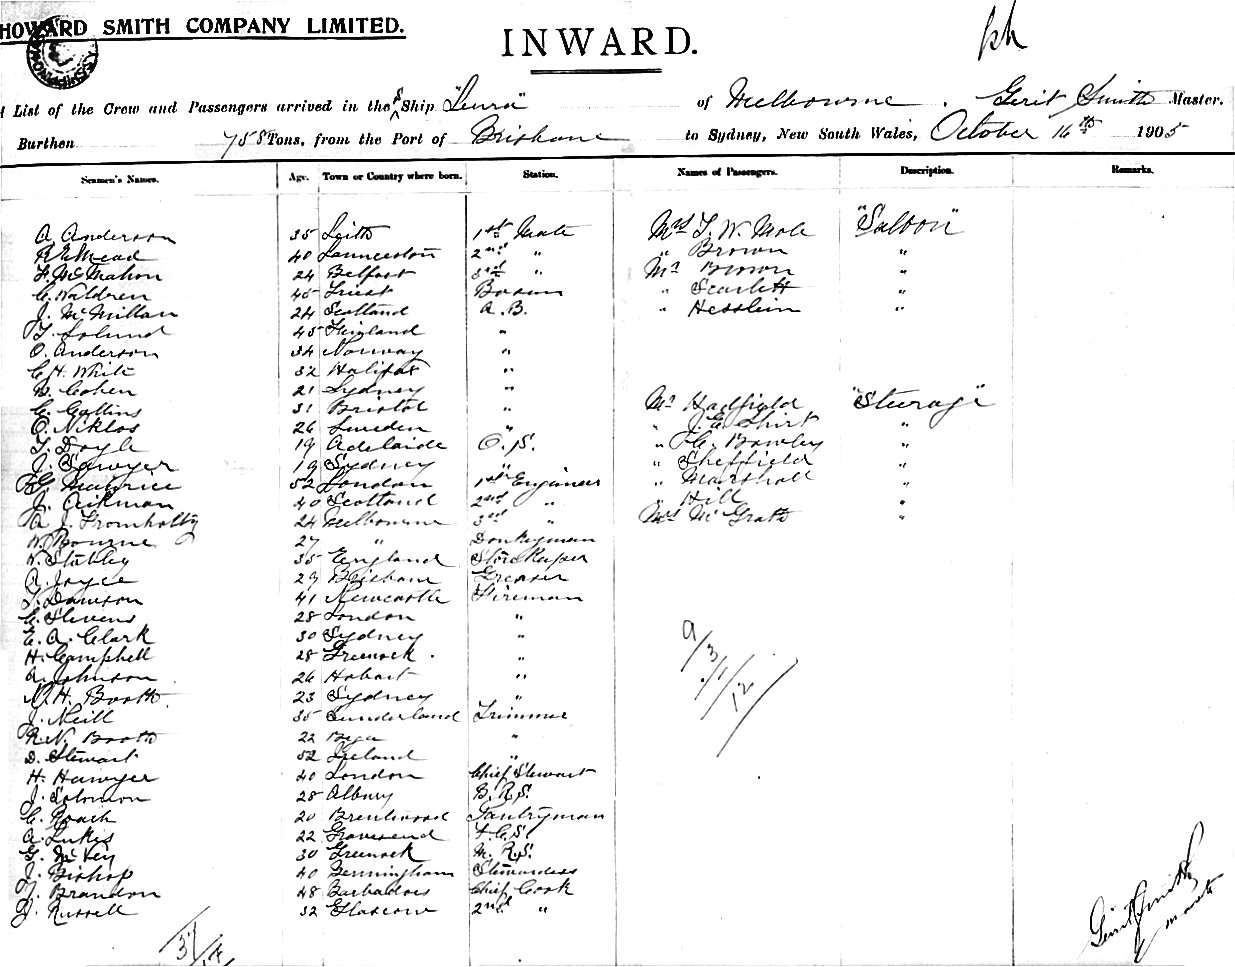 HOWARD SMITH COMPANY LIMITED.
INWARD.
List of the Crew and Passengers arrived in the S Ship "Leura" of Melbourne. Gerit Smith Master.
Burthen 758 Tons, from the Port of Brisbane to Sydney, New South Wales, October 16th 1905
Seamen's Names. Age. Town or Country where born. Station. Names of Passengers. Description. Remarks.
A Anderson 35 Leith 1st Mate Mrs T. W. Mole "Saloon"
Mead 40 Launceston 2nd " " Brown "
McMahon 24 Belfast 3rd " Mr Brown "
C. Waldren 45 Bosun " Scarlett "
J. McMillan 24 Scotland A. B. " Hesslein "
45 "
O. Anderson 34 Norway "
C. H. White 32 Halifax "
Cohen 21 Sydney "
C. Gallins 31 Bristol " Mr Hadfield "Steerage"
O. Niklos 26 Sweden " " J. E. Shirt "
T. Doyle 19 Adelaide O. S. " Bowley "
J. Sawyer 19 Sydney " " Sheffield "
52 London 1st Engineer " Marshall "
J. Aikman 40 Scotland 2nd " " Hill "
A J. Fromholtz 24 Melbourne 3rd " Mrs McGrath "
W. Bourne 27 " Donkeyman
W. Stubley 35 England Store Keeper
A Joyce 29 Brisbane Greaser
T. Dawson 41 Newcastle Fireman
C. Stevens 28 London "
E. A. Clark 30 Sydney "
H. Campbell 28 Greenock. "
A. Johnson 26 Hobart "
H. Booth 23 Sydney "
J. Neill 35 Sunderland Trimmer
R. N. Booth 22 Bega "
D. Stewart 52 Ireland "
H. Hawyer 40 London Chief Stewart
J. Solomon 28 Albury B. R. S.
C. Roach 20 Brentwood Pantryman
A. Lukis 22 Gravesend F. C. S.
G. McKey 30 Greenock M. R. S.
J. Bishop 40 Stewardess
T. Brandon 48 Barbadoes Chief Cook
J. Russell 32 Glascow 2nd "
9/3/1/12
Gerit Smith